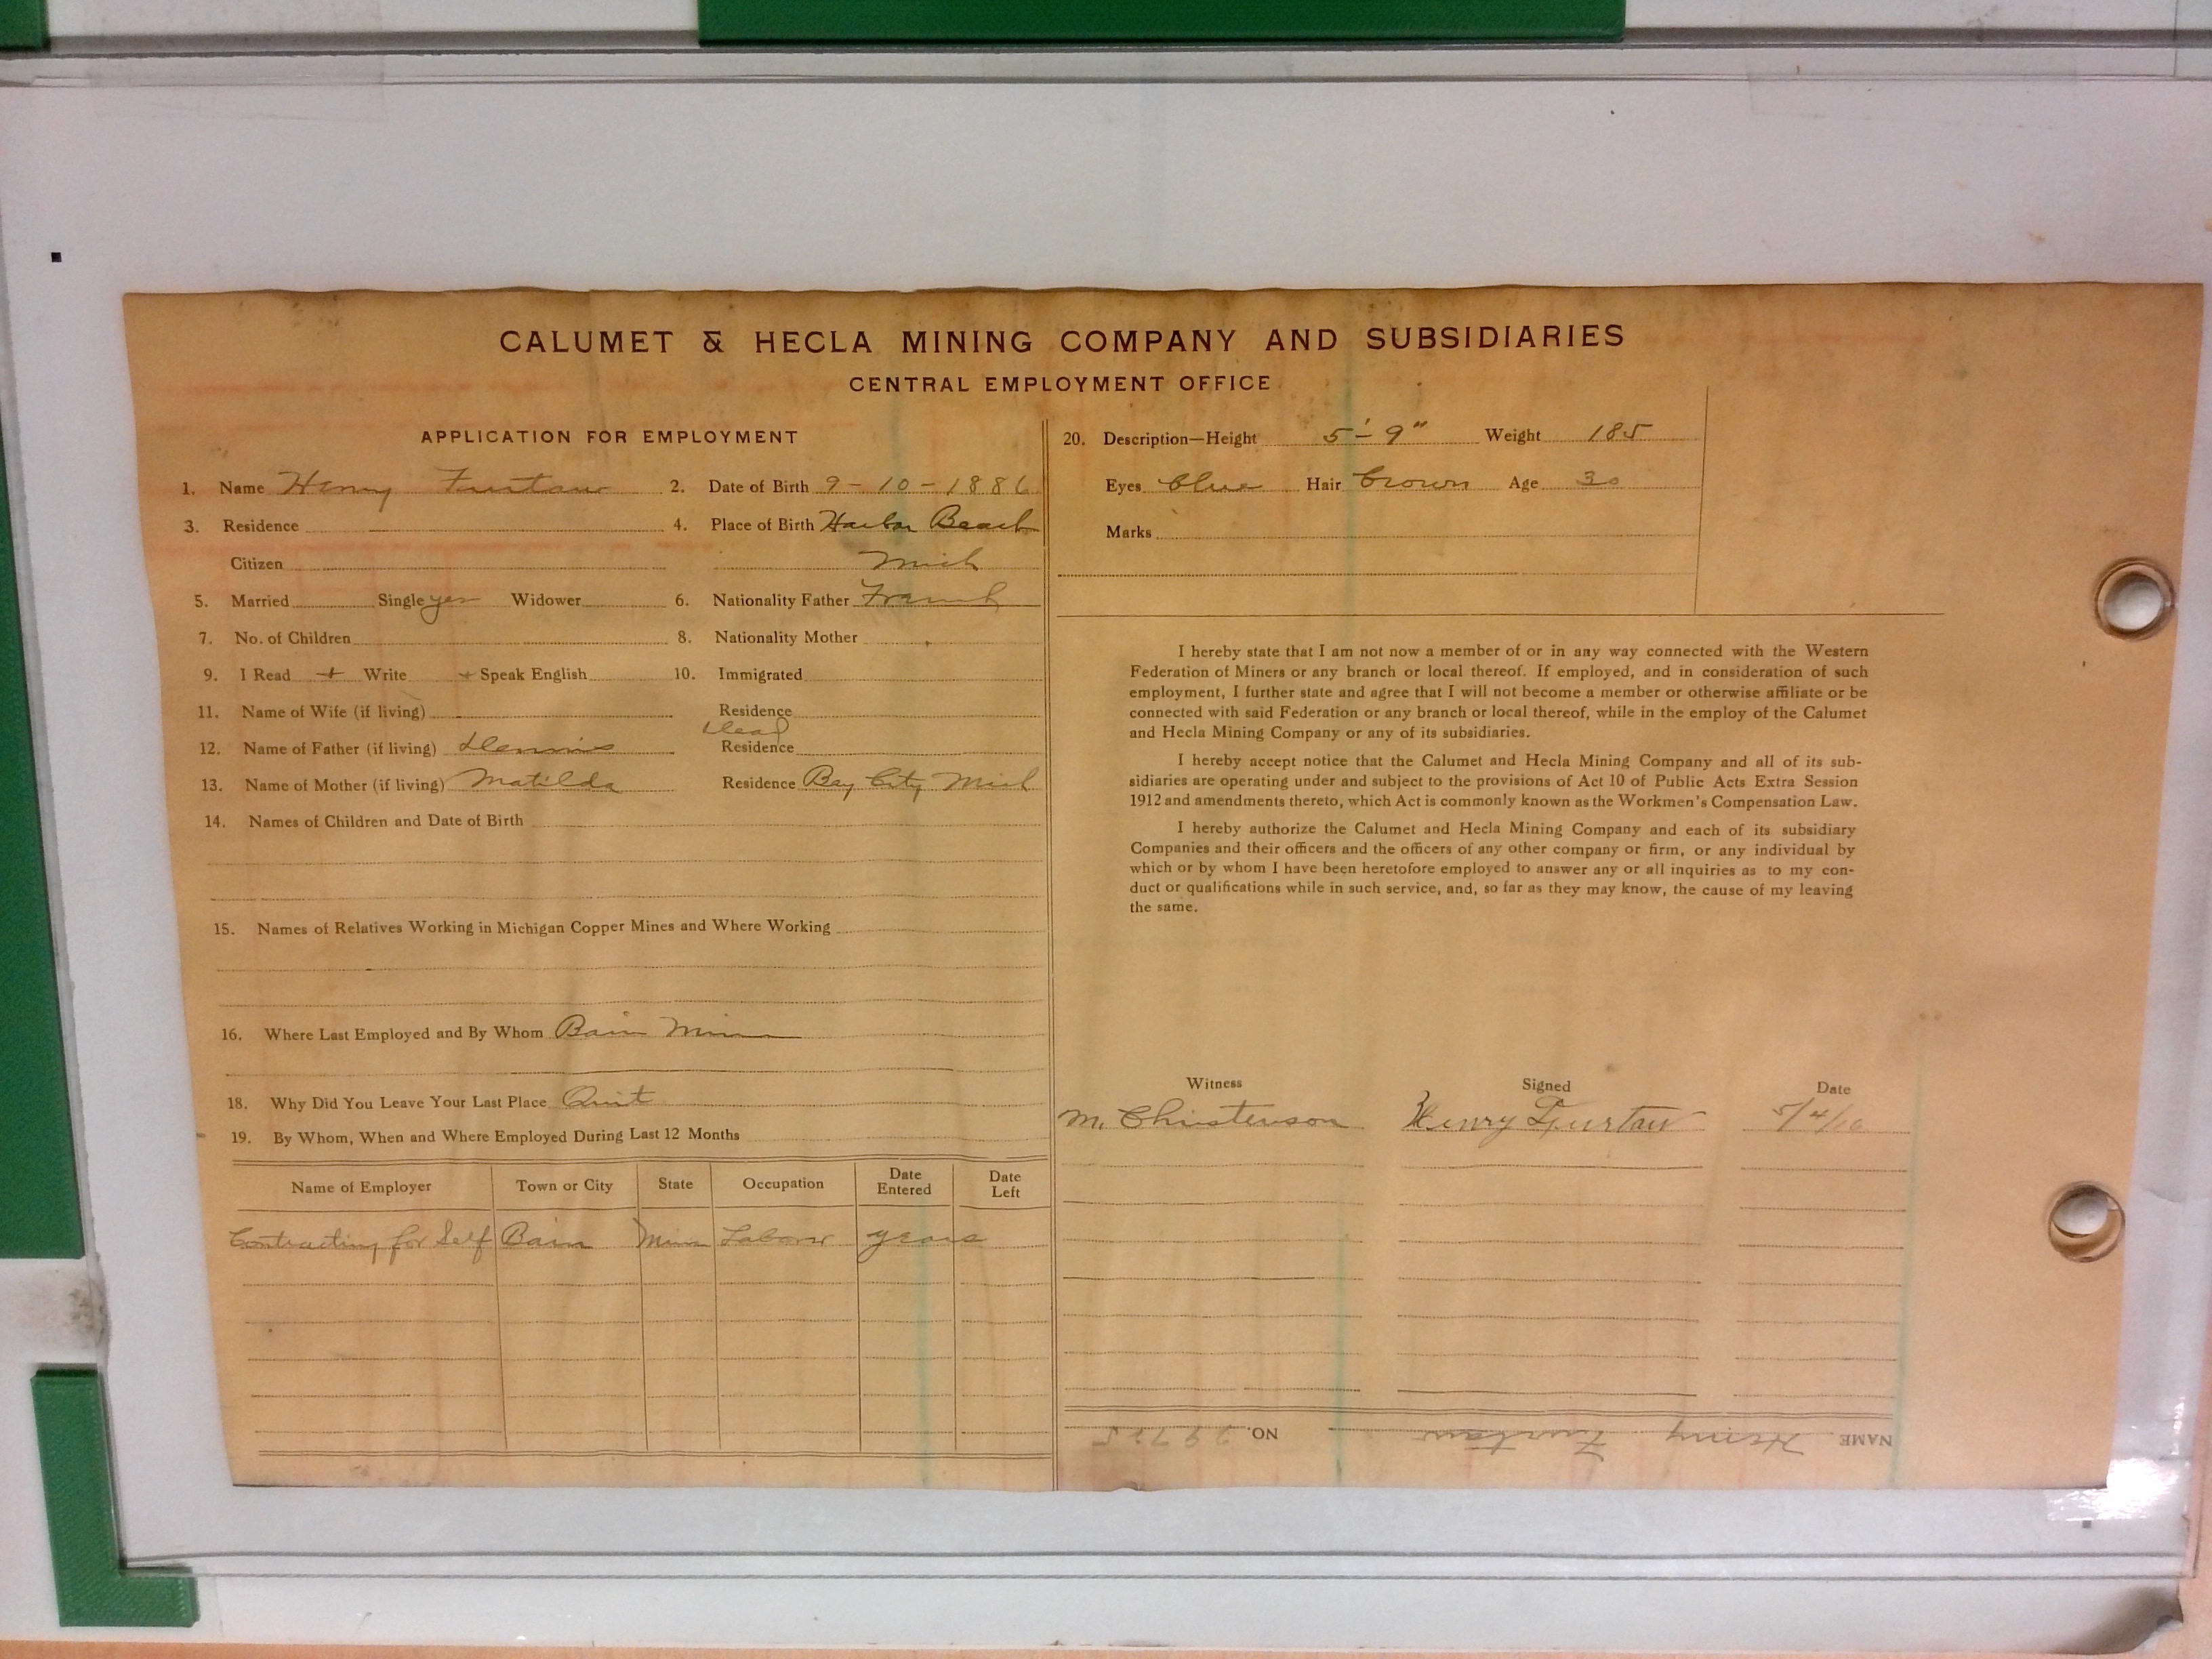 CALUMET & HECLA MINING COMPANY AND SUBSIDIARIES
CENTRAL EMPLOYMENT OFFICE
APPLICATION FOR EMPLOYMENT
1. Name Henry Furtaw 2. Date of Birth 9-10-1886
3. Residence 4. Place of Birth Harbor Beach
Citizen Mich
5. Married Single yes Widower 6. Nationality Father French
7. No. of Children 8. Nationality Mother
9. I Read + Write + Speak English 10. Immigrated
11. Name of Wife (if living) Residence
12. Name of Father (if living) Dennis Dead Residence
13. Name of Mother (if living) Matilda Residence Bay City Mich
14. Names of Children and Date of Birth
15. Names of Relatives Working in Michigan Copper Mines and Where Working
16. Where Last Employed and By Whom Bain Minn
18. Why Did You Leave Your Last Place Quit
19. By Whom, When and Where Employed During Last 12 Months
Name of Employer Town or City State Occupation Date Entered Date Left
Contracting for Self Bain Minn Laborer years
20. Description—Height 5'-9" Weight 185
Eyes blue Hair brown Age 30
Marks
I hereby state that I am not now a member of or in any way connected with the Western
Federation of Miners or any branch or local thereof. If employed, and in consideration of such
employment, I further state and agree that I will not become a member or otherwise affiliate or be
connected with said Federation or any branch or local thereof, while in the employ of the Calumet
and Hecla Mining Company or any of its subsidiaries.
I hereby accept notice that the Calumet and Hecla Mining Company and all of its sub-
sidiaries are operating under and subject to the provisions of Act 10 of Public Acts Extra Session
1912 and amendments thereto, which Act is commonly known as the Workmen's Compensation Law.
I hereby authorize the Calumet and Hecla Mining Company and each of its subsidiary
Companies and their officers and the officers of any other company or firm, or any individual by
which or by whom I have been heretofore employed to answer any or all inquiries as to my con-
duct or qualifications while in such service, and, so far as they may know, the cause of my leaving
the same.
Witness Signed Date
M. Christenson Henry Furtaw
NAME Henry Furtaw NO.